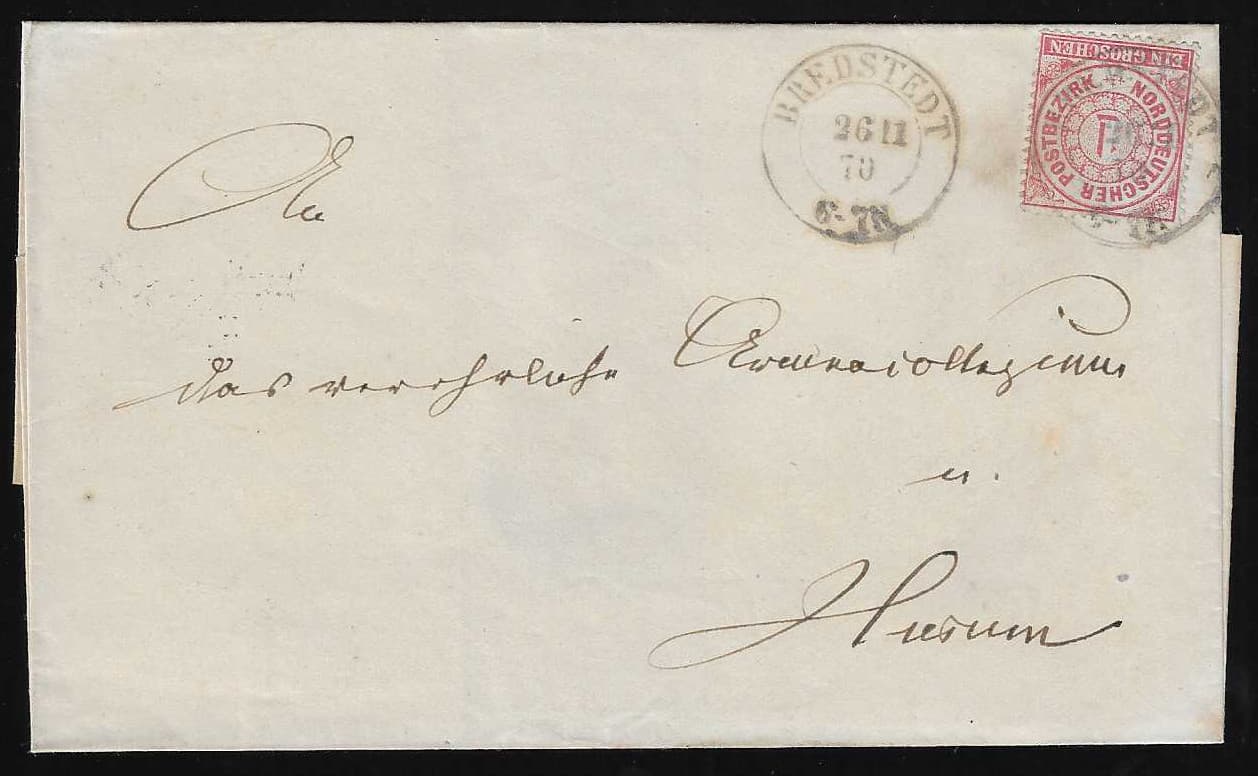 BREDSTEDT
26 11
70
6-7N
EIN GROSCHEN
NORDDEUTSCHER POSTBEZIRK
1
An
das verehrliche Armencollegium
in
Husum